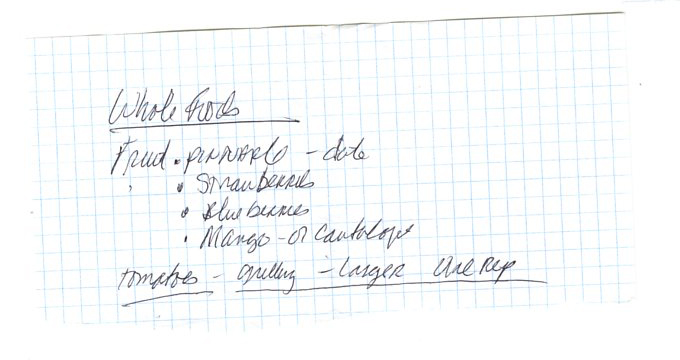 Whole Foods
Fruit • pineapple - date
• Strawberries
• Blueberries
• Mango - or Cantalope
tomatoes - grilling - Larger